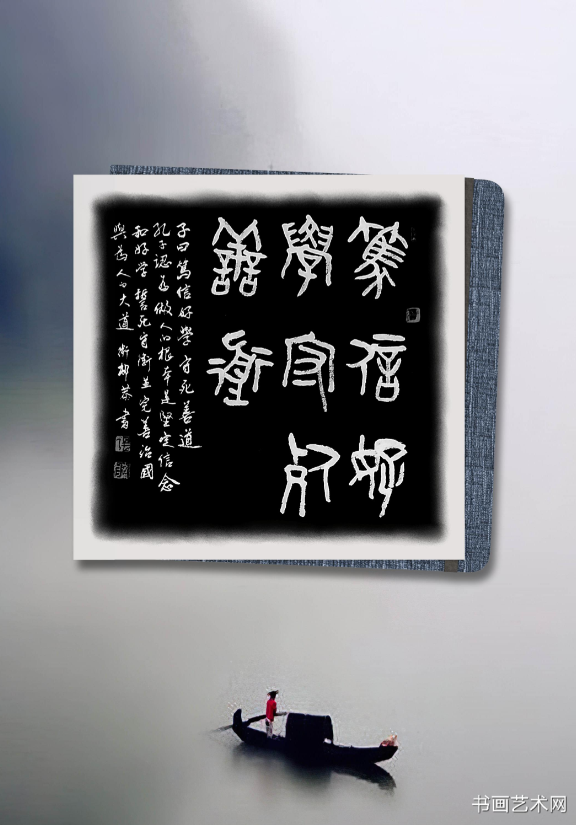 篤信好
學守死
善道
子曰篤信好學守死善道
孔子認為做人的根本是堅定信念
和好学誓死守衛並完善治國
與為人的大道 書
书画艺术网